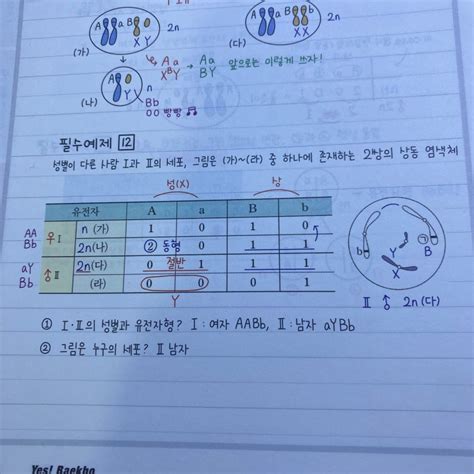 A a B 2n
X Y
(가)
A a B b 2n
X X
(다)
Aa
X^BY → Aa
BY 앞으로는 이렇게 쓰자!
A Y n
(나) Bb
빵빵
필수예제 12
성별이 다른 사람 I과 II의 세포, 그림은 (가)~(라) 중 하나에 존재하는 2쌍의 상동 염색체
성(X) 상
유전자 A a B b
AA
Bb
우 I
n (가) 1 0 1 0
2n(나) ② 동형 0 1 1
aY
Bb
II
2n(다) 0 절반 1 1 1
(라) 0 0 0 1
Y
b Y ㉠ B
X
II 2n (다)
① I·II의 성별과 유전자형? I : 여자 AABb, II : 남자 aYBb
② 그림은 누구의 세포? II 남자
Yes! Baekho